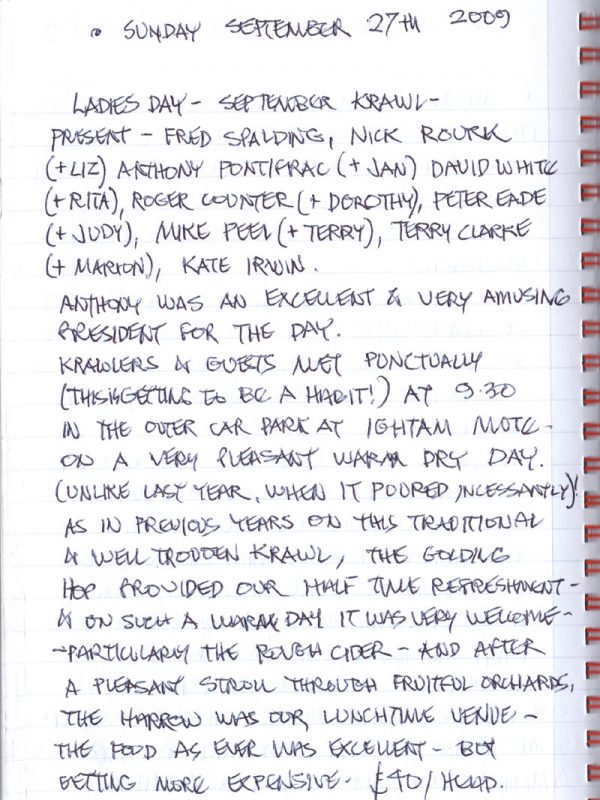 • SUNDAY SEPTEMBER 27TH 2009
LADIES DAY - SEPTEMBER KRAWL -
PRESENT - FRED SPALDING, NICK ROURK
(+LIZ) ANTHONY PONTIFRAC (+ JAN) DAVID WHITE
(+ RITA), ROGER COUNTER (+ DOROTHY), PETER EADE
(+ JUDY), MIKE PEEL (+ TERRY), TERRY CLARKE
(+ MARION), KATE IRWIN.
ANTHONY WAS AN EXCELLENT & VERY AMUSING
PRESIDENT FOR THE DAY.
KRAWLERS & GUESTS MET PUNCTUALLY
(THIS IS GETTING TO BE A HABIT!) AT 9.30
IN THE OUTER CAR PARK AT IGHTAM MOTE -
ON A VERY PLEASANT WARM DRY DAY.
(UNLIKE LAST YEAR, WHEN IT POURED INCESSANTLY)!
AS IN PREVIOUS YEARS ON THIS TRADITIONAL
& WELL TRODDEN KRAWL, THE GOLDING
HOP PROVIDED OUR HALF TIME REFRESHMENT -
& ON SUCH A WARM DAY IT WAS VERY WELCOME -
- PARTICULARLY THE ROUGH CIDER - AND AFTER
A PLEASANT STROLL THROUGH FRUITFUL ORCHARDS,
THE HARROW WAS OUR LUNCHTIME VENUE -
THE FOOD AS EVER WAS EXCELLENT - BUT
GETTING MORE EXPENSIVE - £40/HEAD.